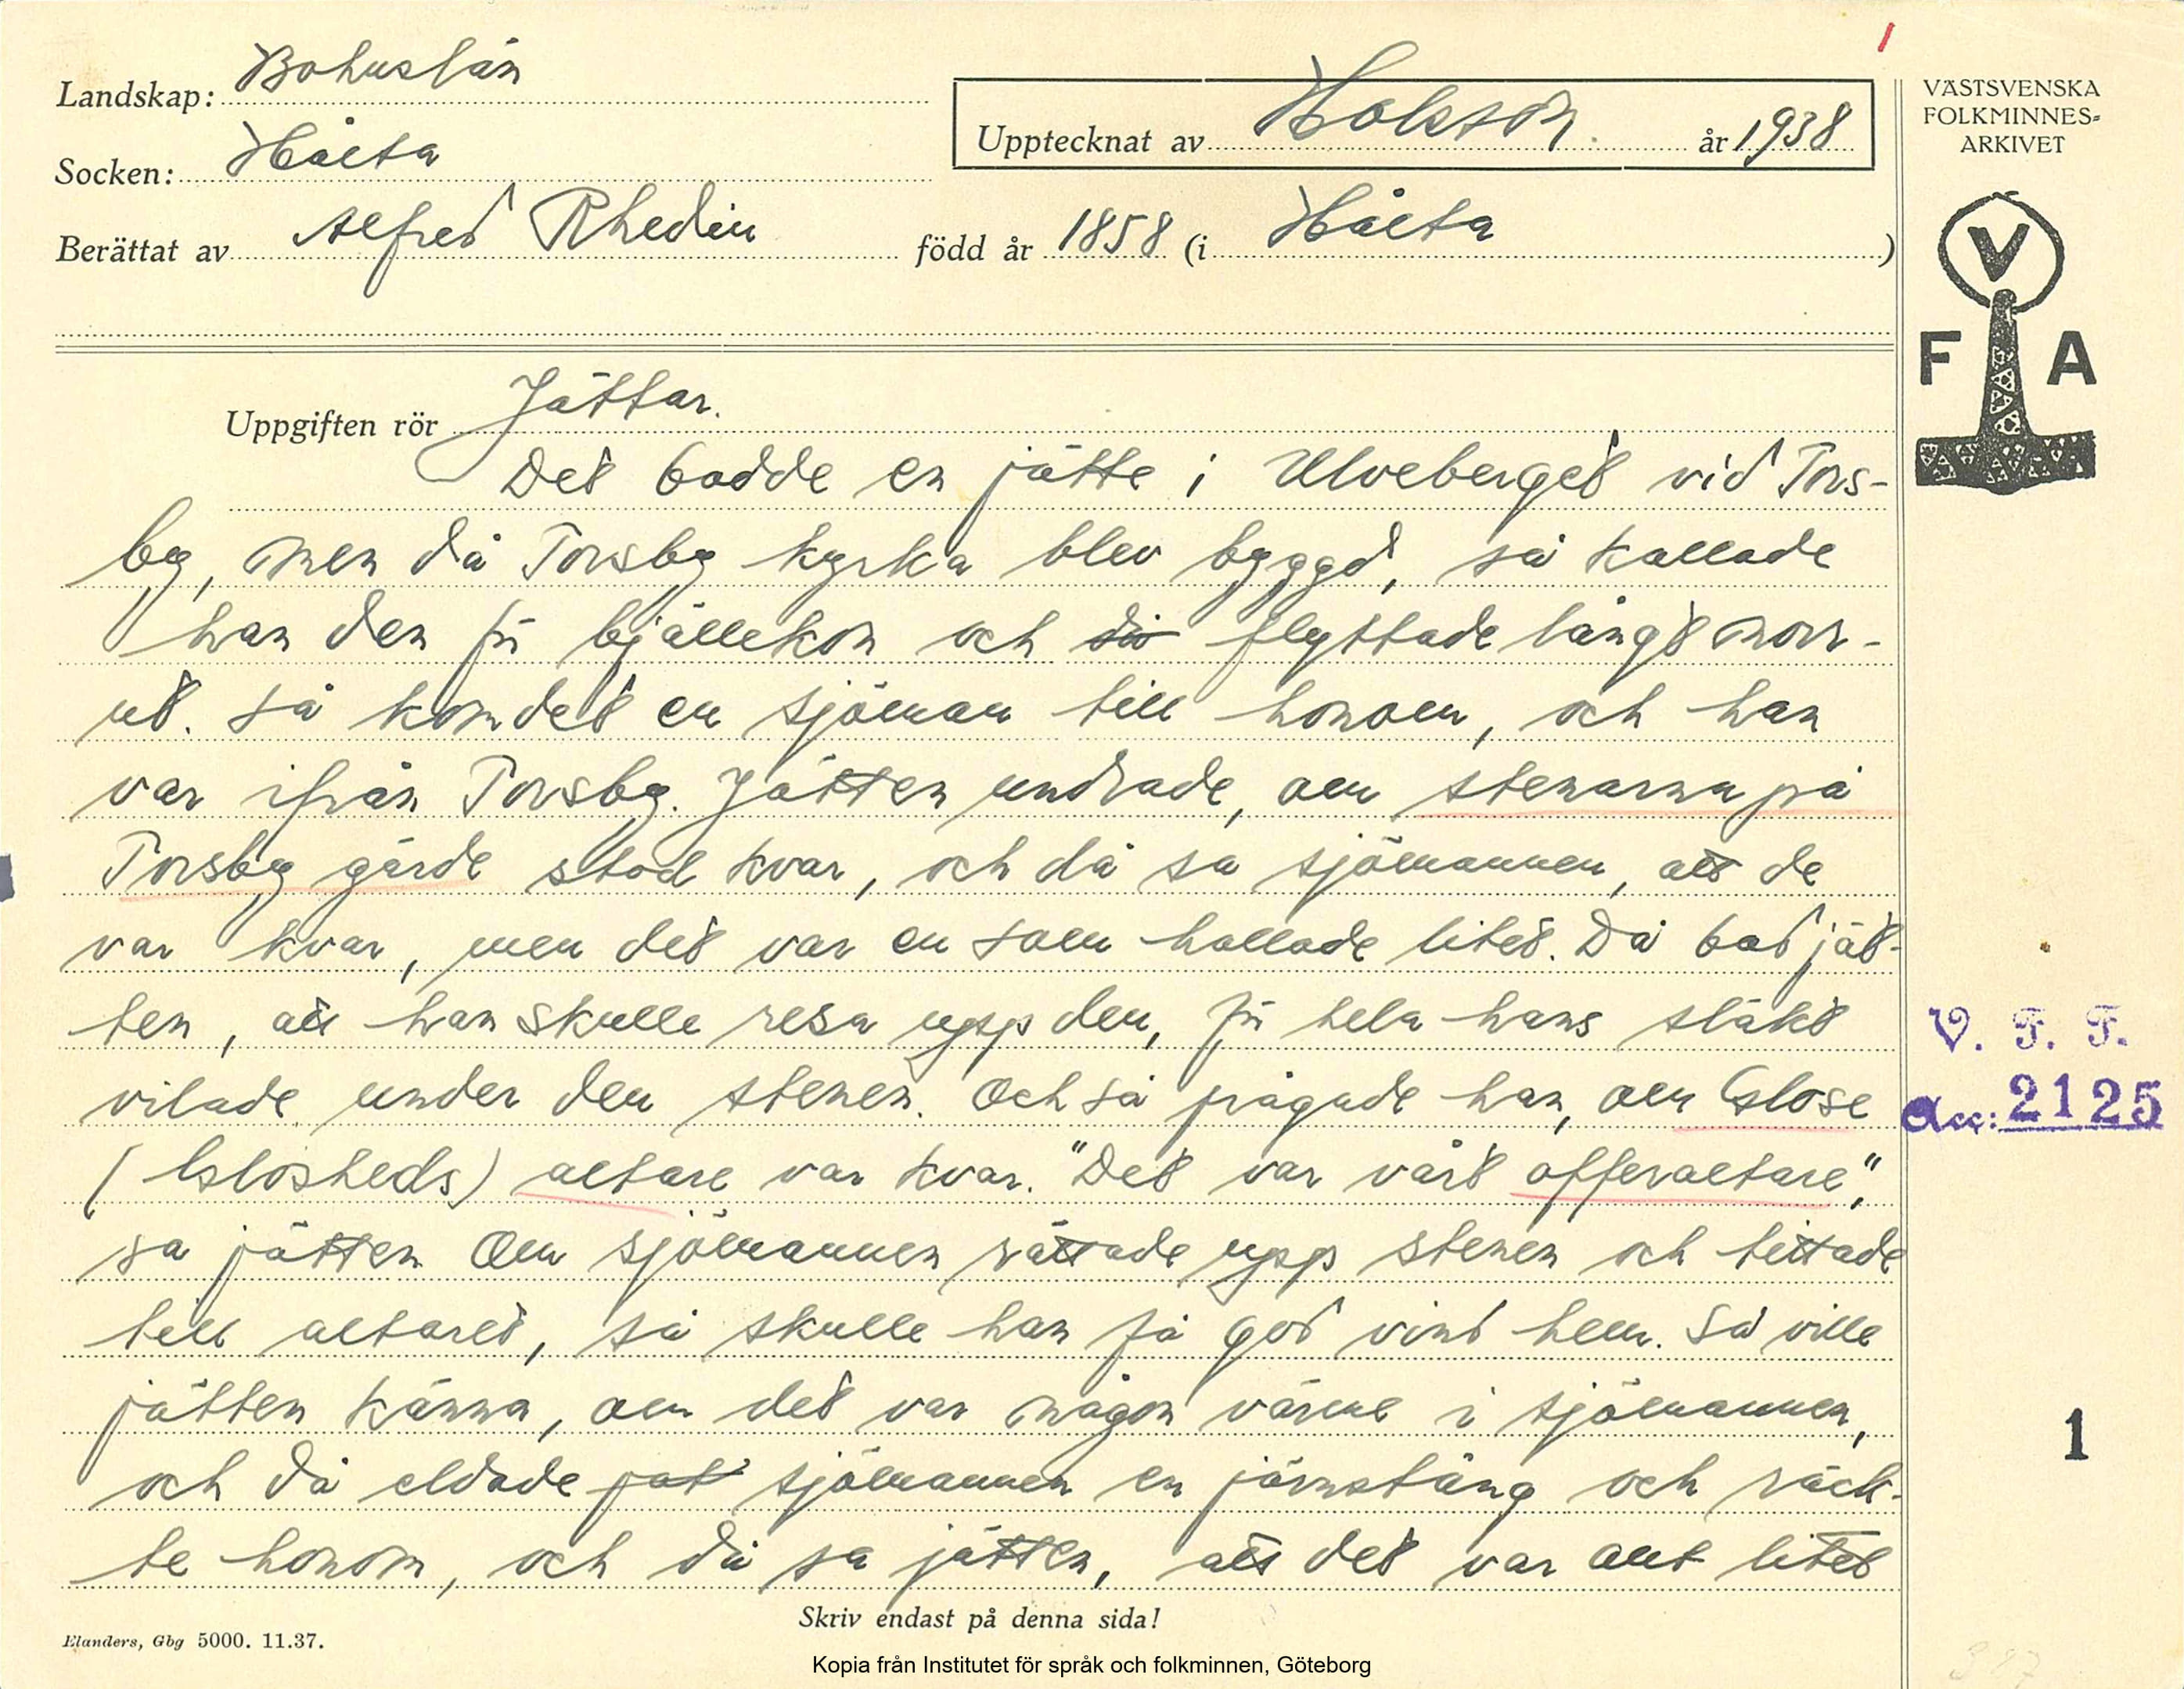 Landskap: Bohuslän
Socken: Hålta
Berättat av Alfred Rhedin född år 1858 (i Hålta )
Upptecknat av Holston. år 1938
VÄSTSVENSKA
FOLKMINNES-
ARKIVET
V
F A
Uppgiften rör Jättar.
Det bodde en jätte i Ulveberget vid Tors-
by, men då Torsby kyrka blev byggd, så kallade
han den för bjällekon och flyttade långt norr-
ut. Så kom det en sjöman till honom, och han
var ifrån Torsby. Jätten undrade, om stenarna på
Torsby gärde stod kvar, och då sa sjömannen, att de
var kvar, men det var en som hallade litet. Då bad jät-
ten, att han skulle resa upp den, för hela hans släkt
vilade under den stenen. Och så frågade han, om Glose
(Glösheds) altare var kvar. "Det var vårt offeraltare",
sa jätten. Om sjömannen rättade upp stenen och tittade
till altaret, så skulle han få god vind hem. Så ville
jätten känna, om det var någon värme i sjömannen,
och då eldade sjömannen en järnstång och räck-
te honom, och då sa jätten, att det var allt litet
V. F. F.
Acc: 2125
1
Skriv endast på denna sida!
Elanders, Gbg 5000. 11.37.
Kopia från Institutet för språk och folkminnen, Göteborg